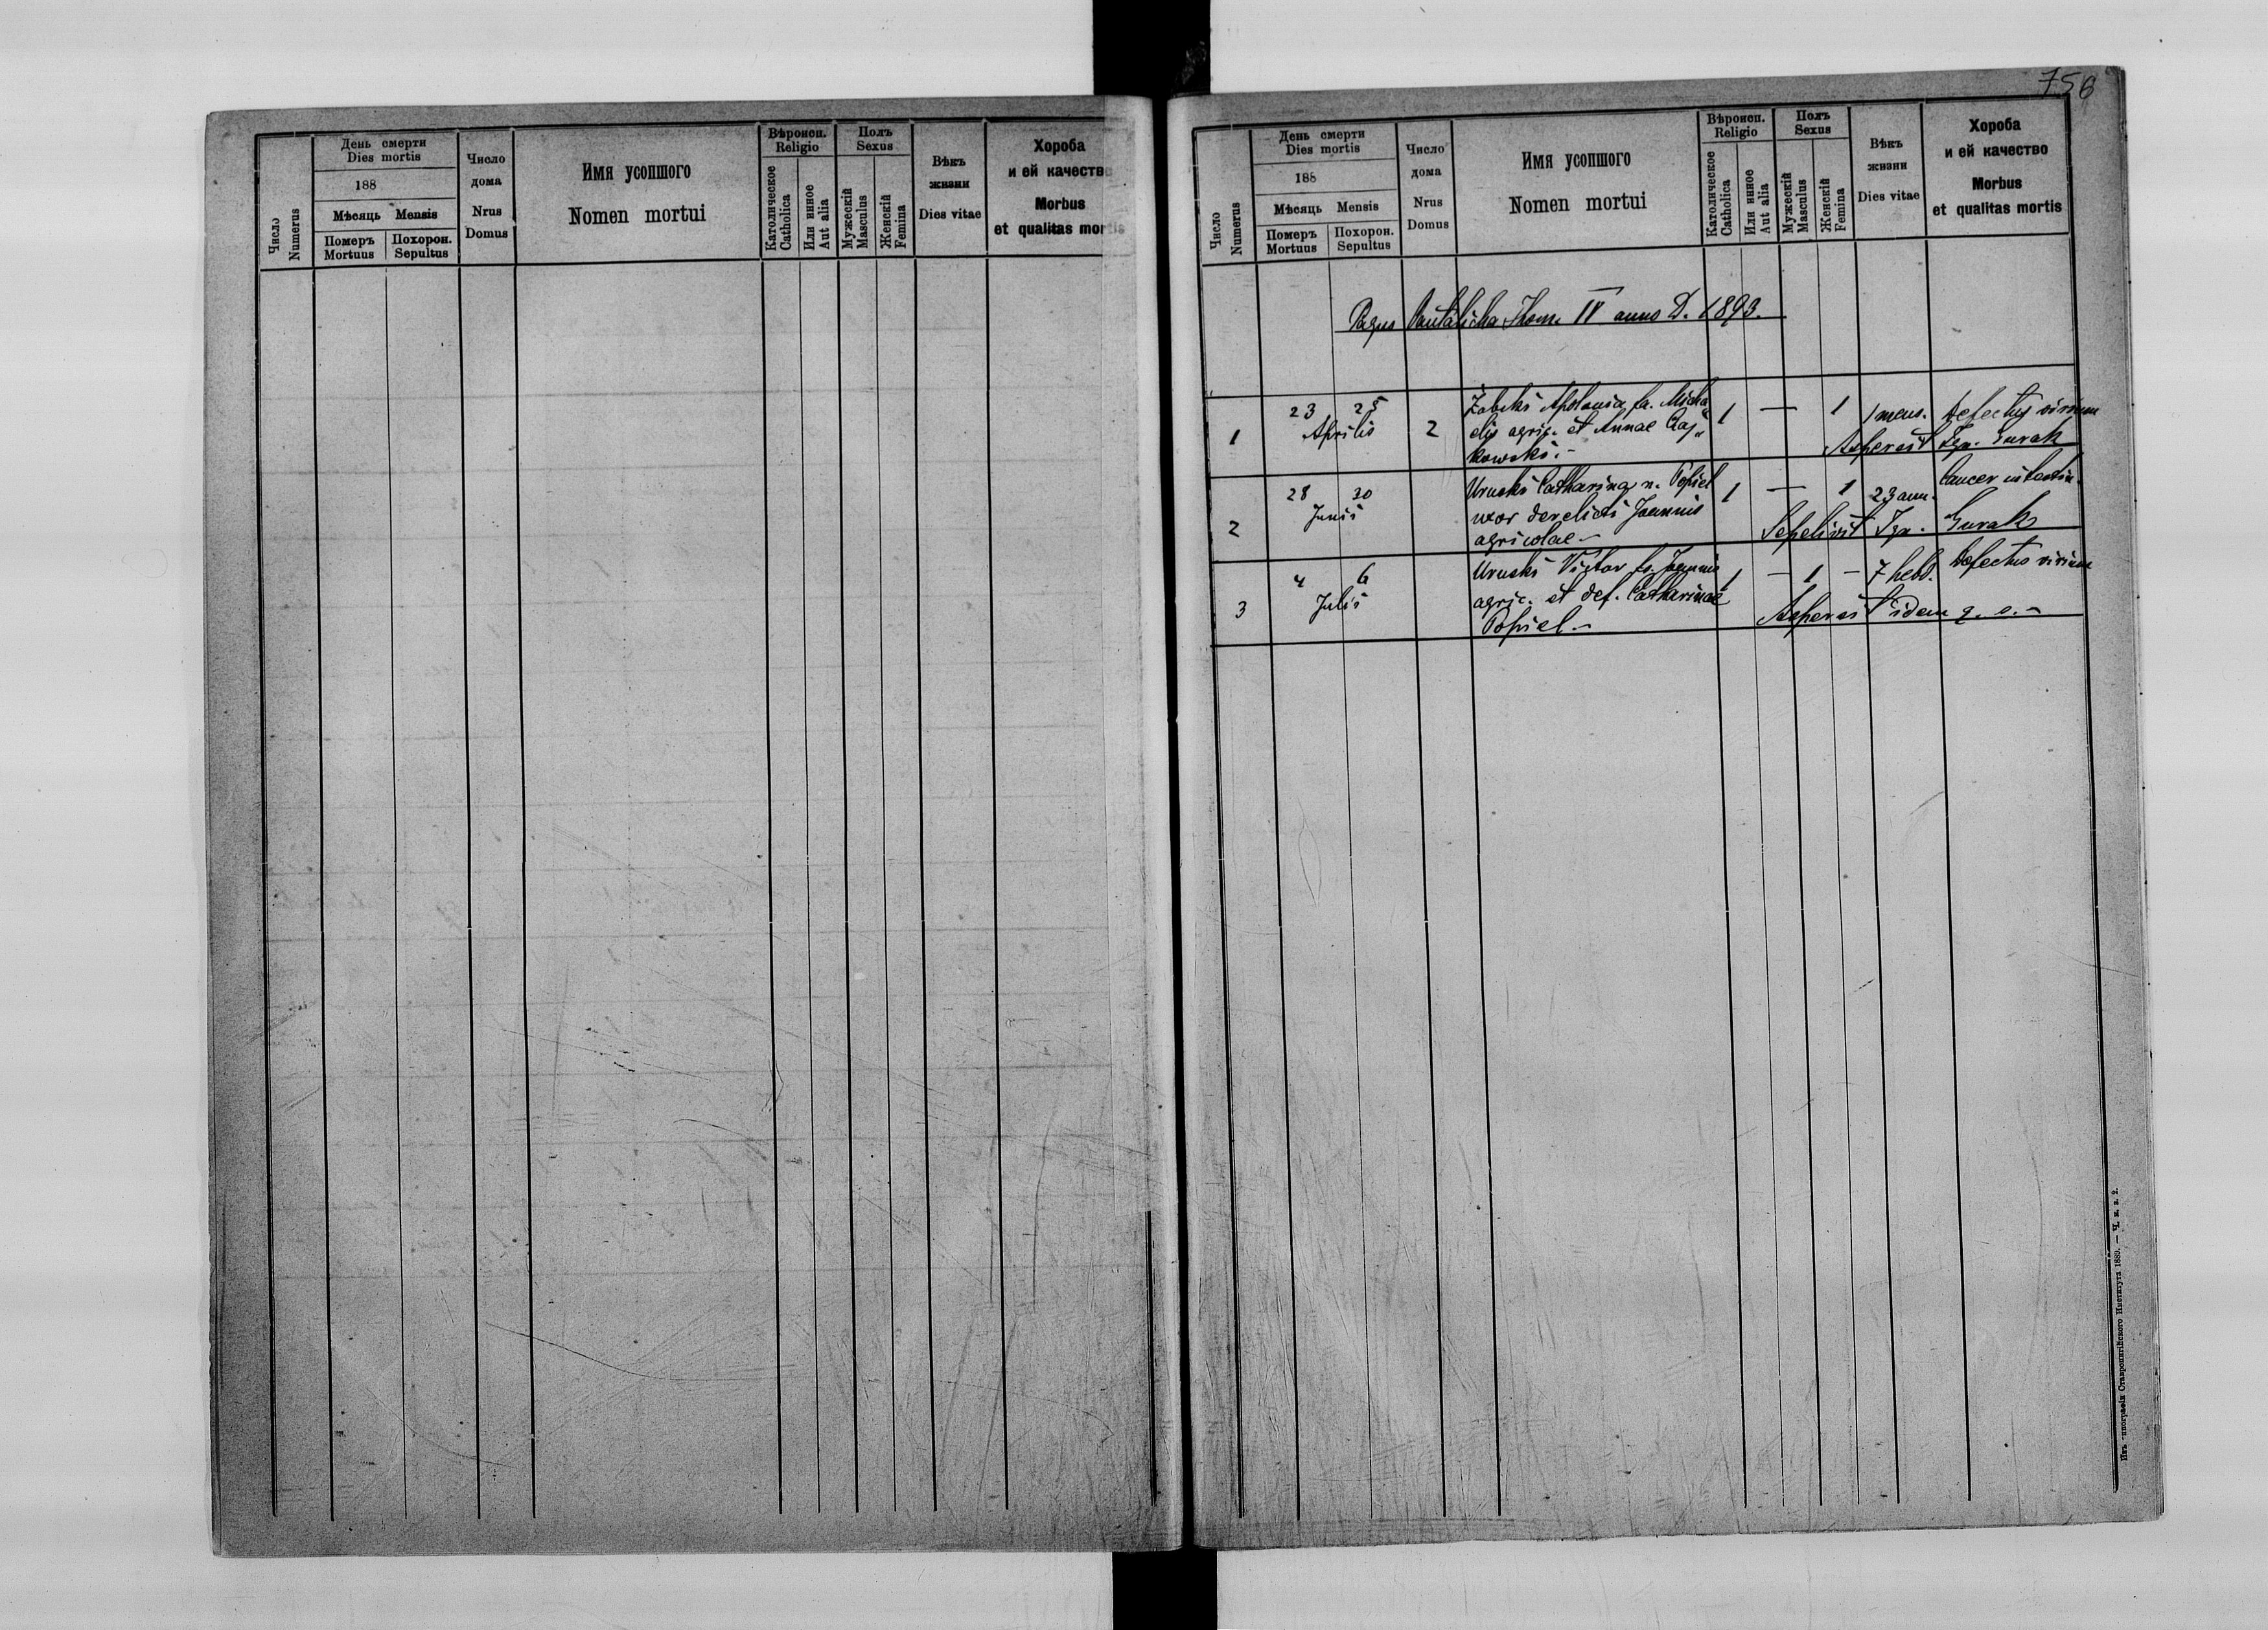 756
Число
Numerus
День смерти
Dies mortis
188
Мѣсяць Mensis
Померъ
Mortuus
Похорон.
Sepultus
Число
дома
Nrus
Domus
Имя усопшого
Nomen mortui
Вѣроисп.
Religio
Католическое
Catholica
Или инное
Aut alia
Полъ
Sexus
Мужескій
Masculus
Женскій
Femina
Вѣкъ
жизни
Dies vitae
Хороба
и ей качество
Morbus
et qualitas mortis
Число
Numerus
День смерти
Dies mortis
188
Мѣсяць Mensis
Померъ
Mortuus
Похорон.
Sepultus
Число
дома
Nrus
Domus
Имя усопшого
Nomen mortui
Вѣроисп.
Religio
Католическое
Catholica
Или инное
Aut alia
Полъ
Sexus
Мужескій
Masculus
Женскій
Femina
Вѣкъ
жизни
Dies vitae
Хороба
и ей качество
Morbus
et qualitas mortis
Pagus Pantalicha Thom. IV anno D. 1893.
1 23 25 Aprilis 2 Żabski Apolonia fa. Micha„ 1 — 1 1 mens. Defectus virium
elis agric. et Annae Czaj„ Asperesit Igr. Gurak
kowski.-
2 28 30 Junii Uruski Catharina n. Popiel 1 — 1 23 ann. Cancer intestin.
uxor derelicti Joannis Sepelivit Igr. Gurak
agricolae-
3 4 6 Julii Uruski Victor fs. Joannis 1 — 1 — 7 hebd. Defectus virium
agric. et def. Catharinae Aspersit idem q. s.-
Popiel-
Изъ типографіи Ставропигійского Института 1889. — Ч. н. з. 2.